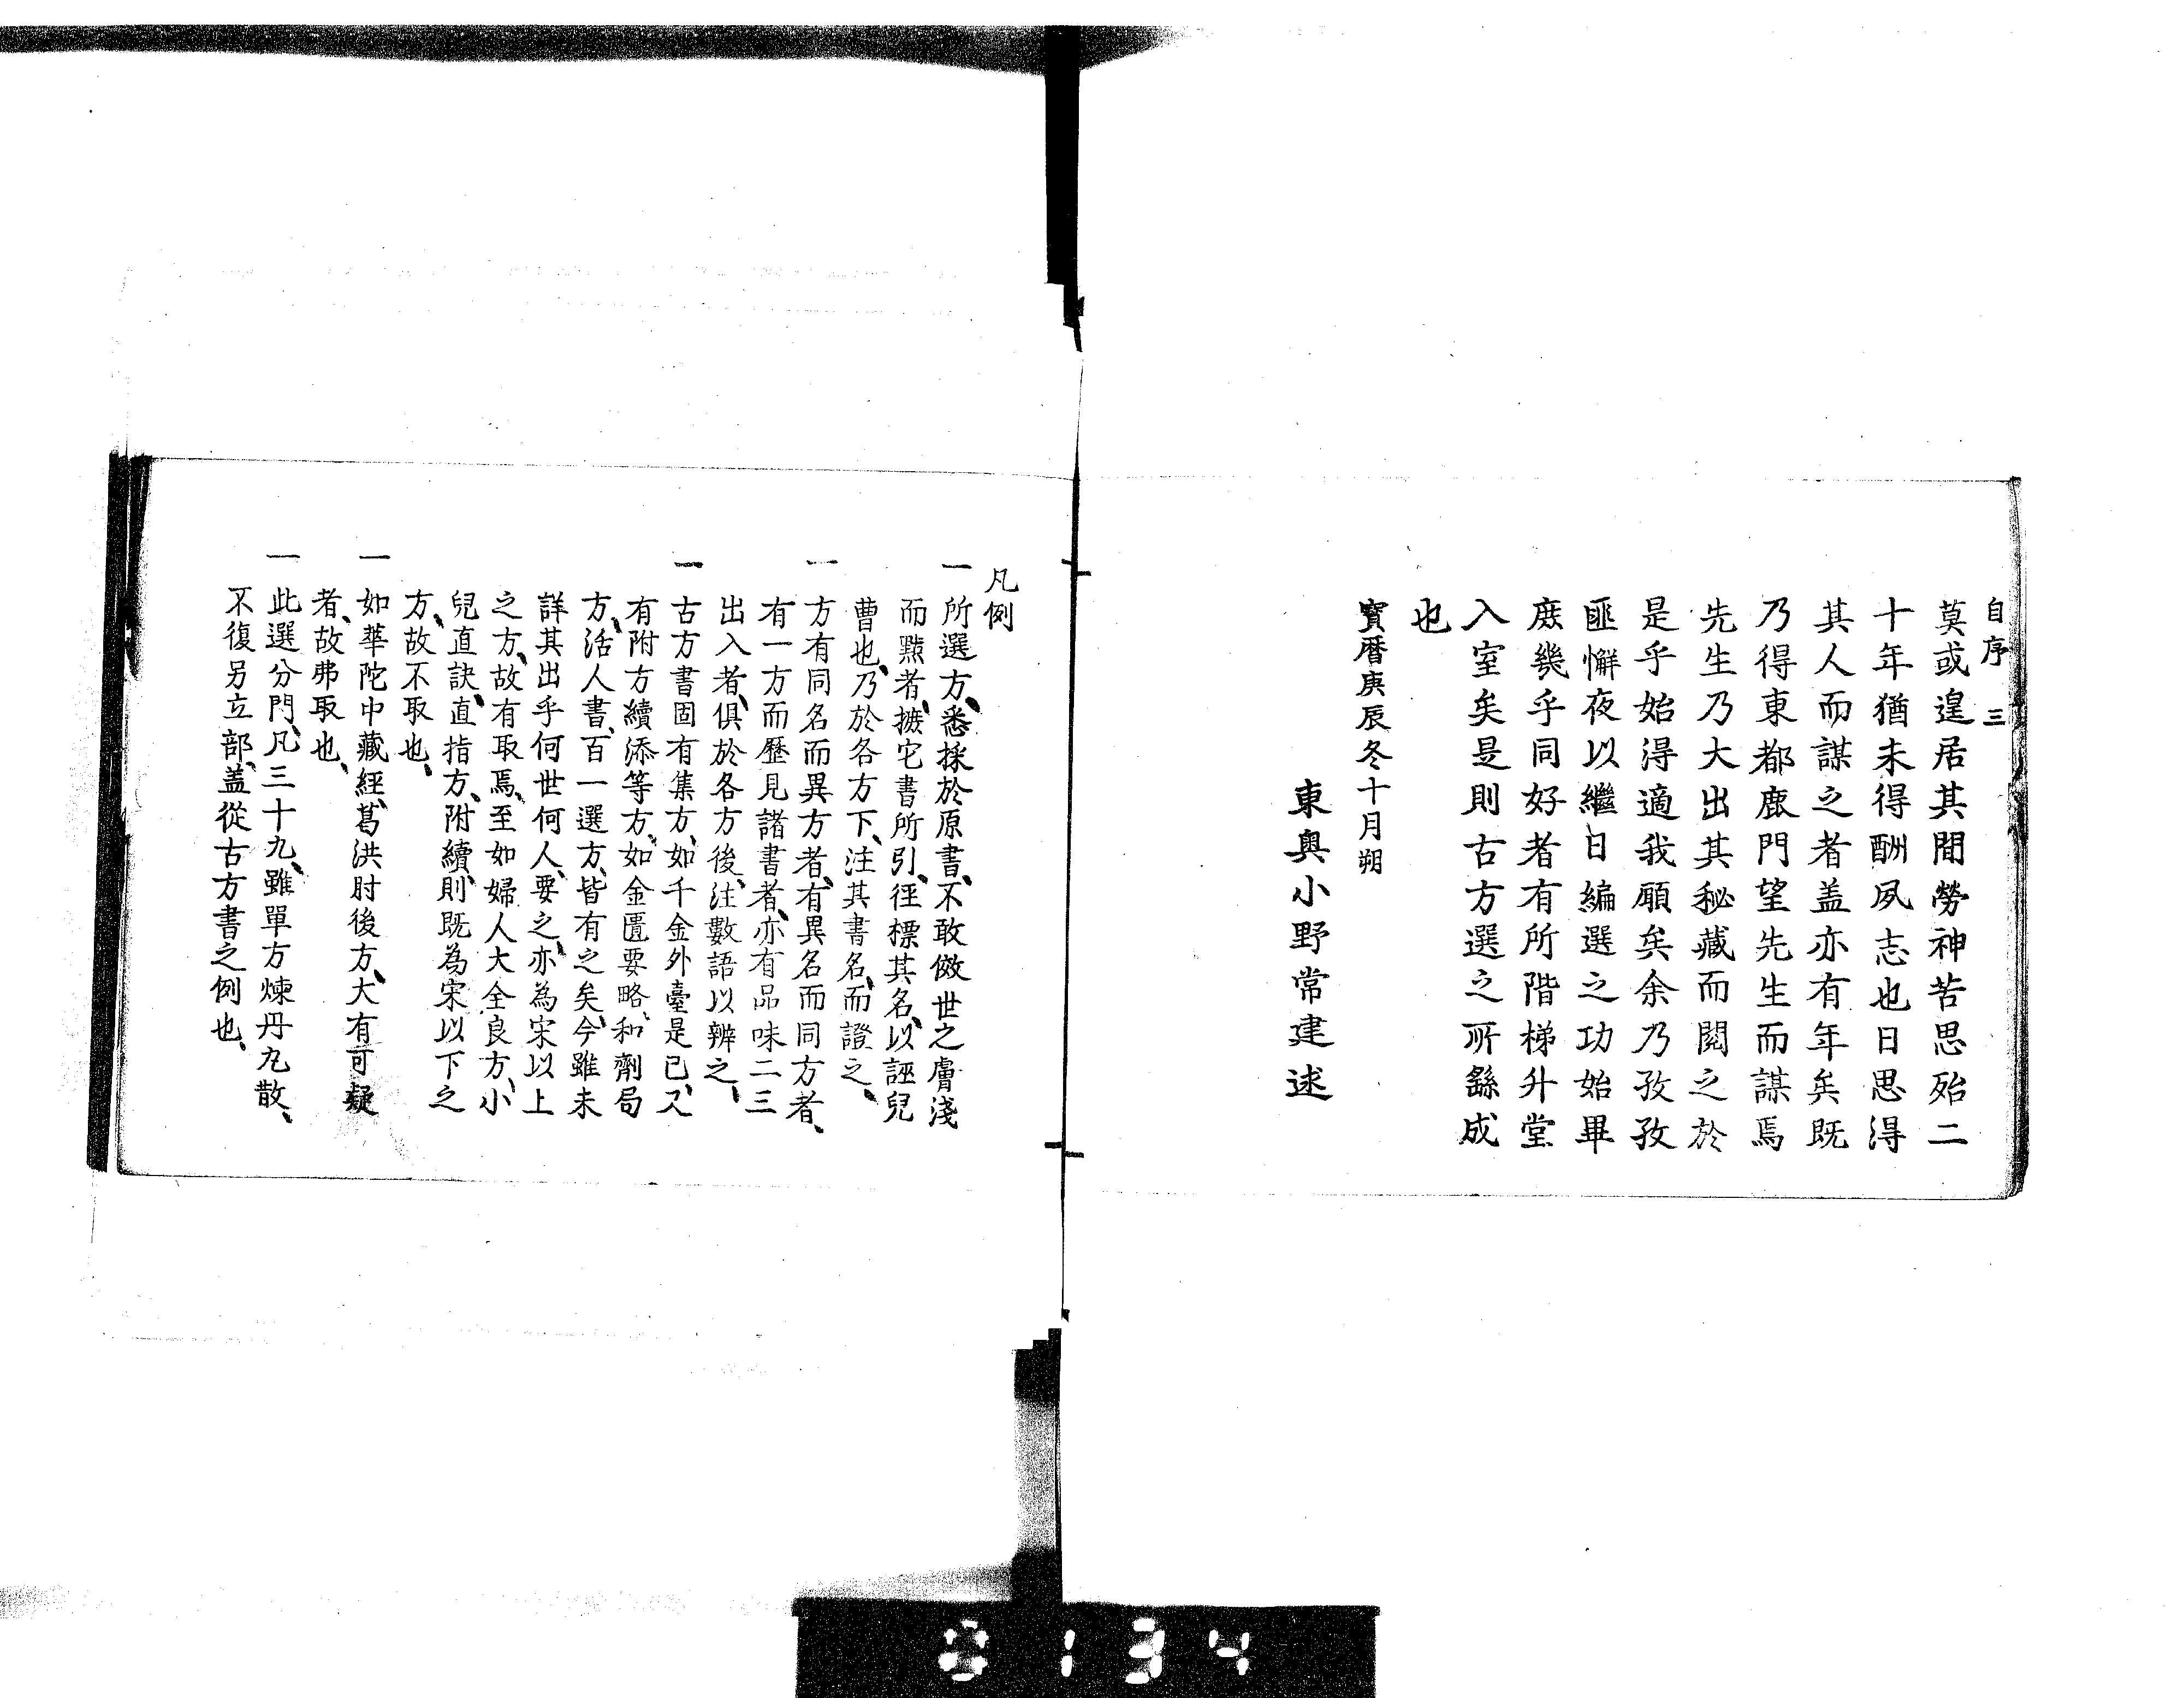 自序 三
莫或遑居其間勞神苦思殆二
十年猶未得酬夙志也日思得
其人而謀之者盖亦有年矣既
乃得東都鹿門望先生而謀焉
先生乃大出其秘藏而閲之於
是乎始得適我願矣余乃孜孜
匪懈夜以繼日編選之功始畢
庶幾乎同好者有所階梯升堂
入室矣是則古方選之所繇成
也
寳暦庚辰冬十月朔
東奥小野常建述
凡例
一所選方、悉採於原書、不敢倣世之膚淺
而黠者、摭它書所引、徑標其名、以誣兒
曹也、乃於各方下、注其書名、而證之、
一方有同名而異方者、有異名而同方者、
有一方而歴見諸書者、亦有品味二三
出入者、俱於各方後、注數語以辨之、
一古方書固有集方、如千金外臺是已、又
有附方續添等方、如金匱要略、和劑局
方、活人書、百一選方、皆有之矣、今雖未
詳其出乎何世何人、要之、亦為宋以上
之方、故有取焉、至如婦人大全良方、小
兒直訣、直指方、附續、則既為宋以下之
方、故不取也、
一如華陀中藏經、葛洪肘後方、大有可疑
者、故弗取也、
一此選分門、凡三十九、雖單方煉丹丸散、
不復另立部、盖從古方書之例也、
0134